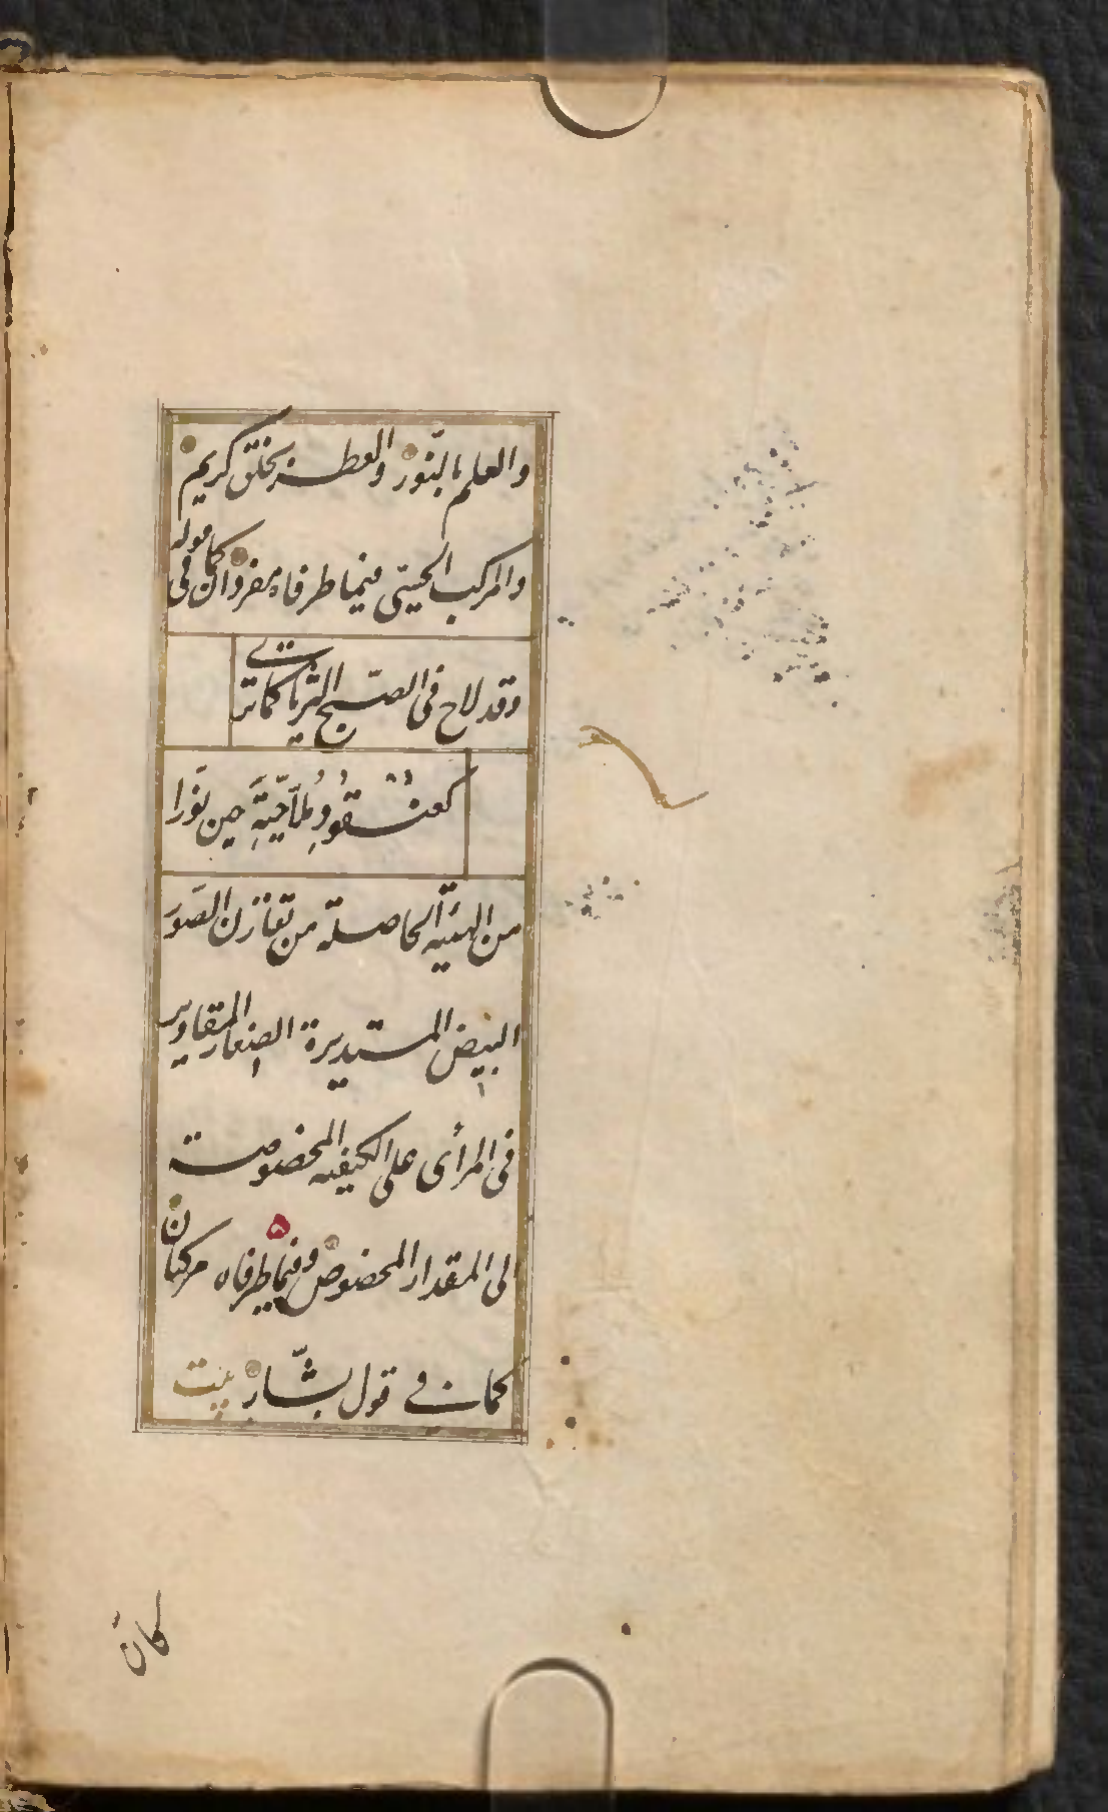 والعلم بالنّور والعطر بخلق كريم
والمركب الحسّى فيما طرفاه مفردان كما فى قوله
وقد لاح فى الصّبح الثريّا كما ترى
كعنقود مُلّاحيّة حين نوّرا
من الهيئة الحاصلة من تقارن الصّور
البيض المستديرة الصغار المقادير
فى المرأى على الكيفيه المخصوصة
الى المقدار المخصوص وفيما طرفاه مركبان
كما فى قول بشّار بيت
كان